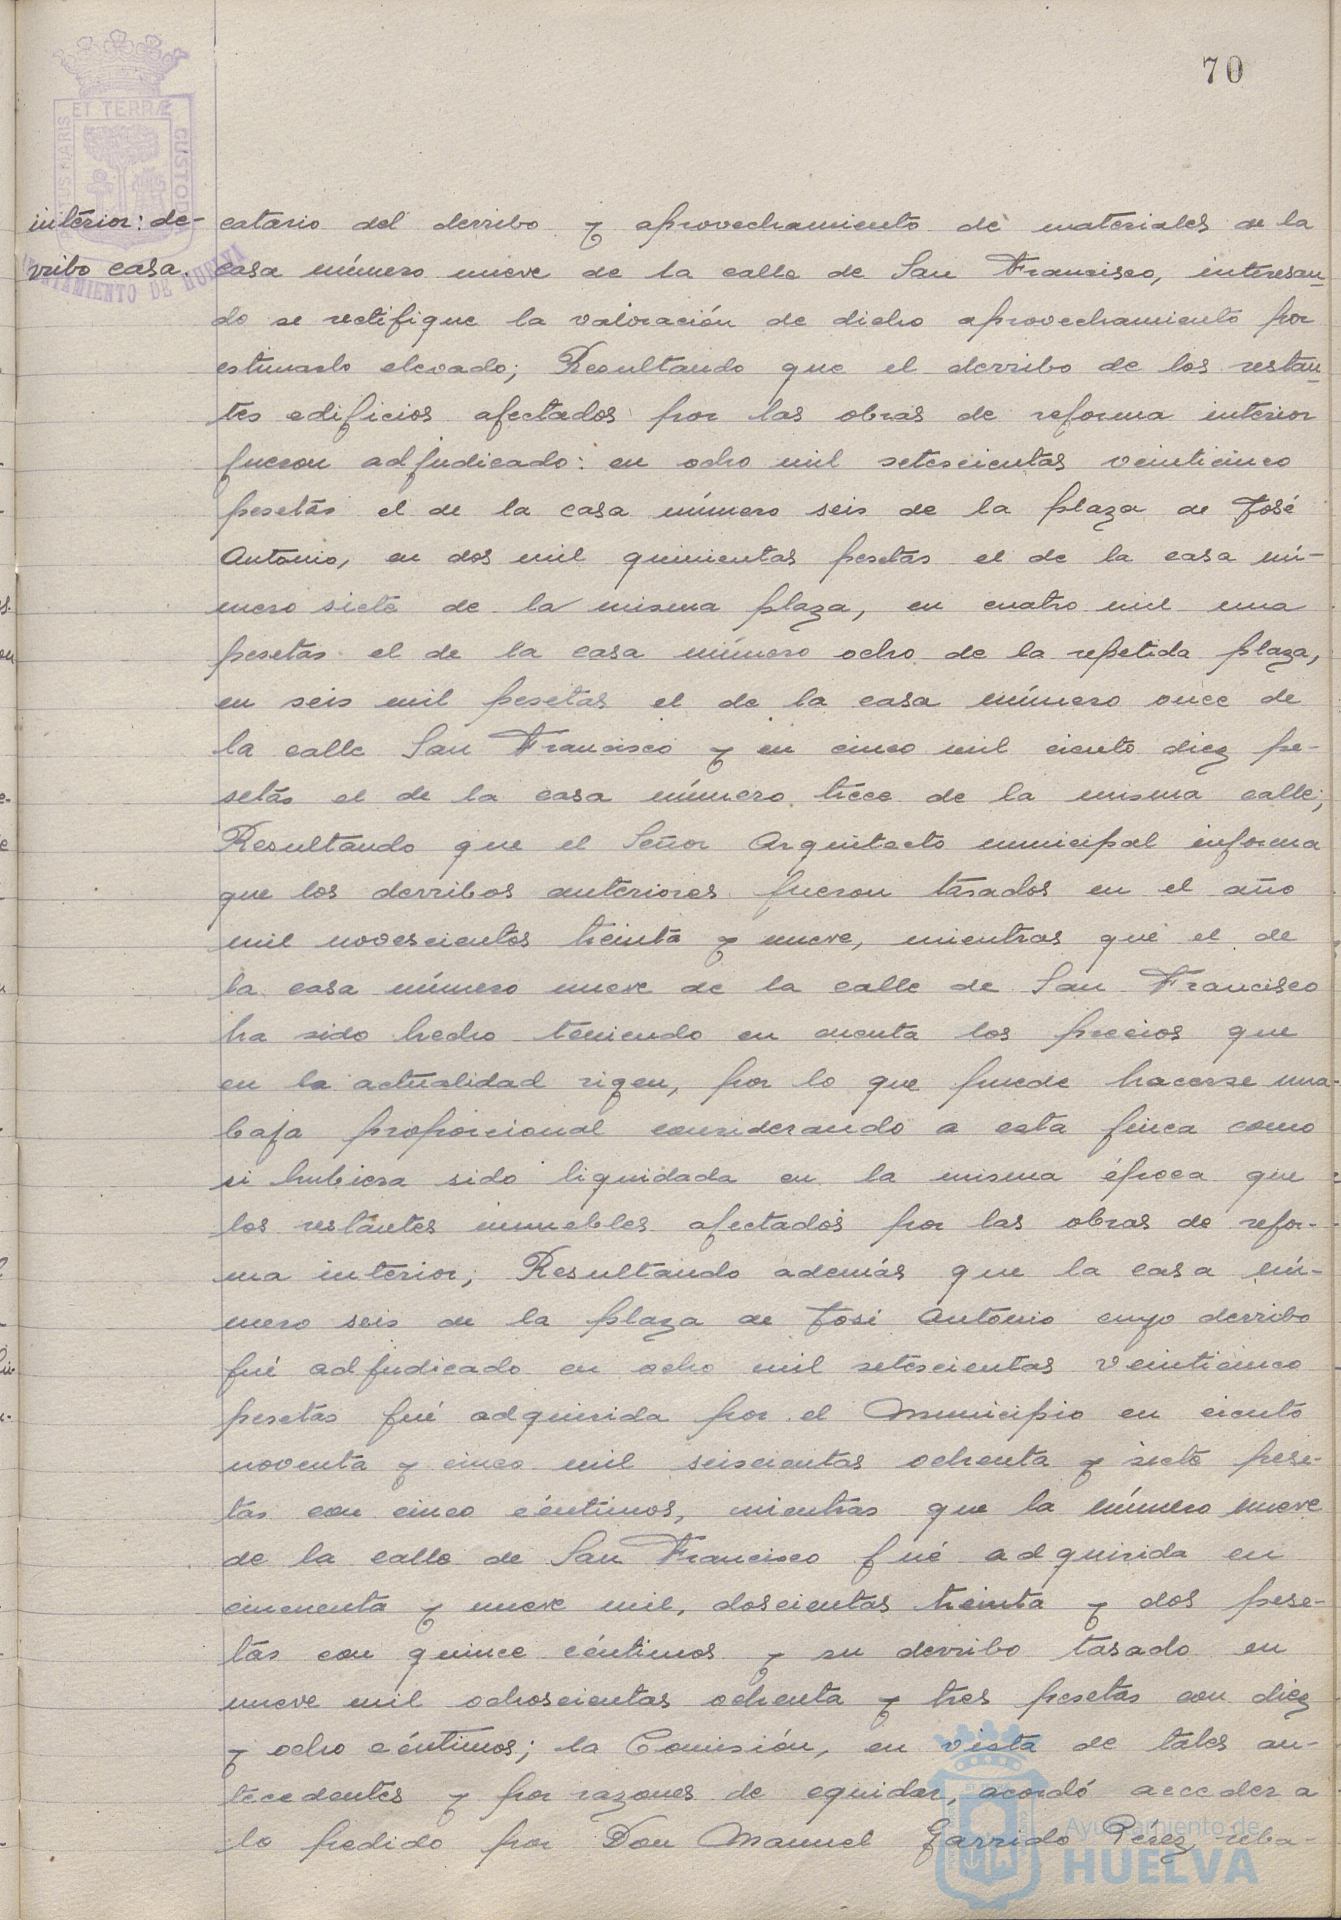 70
ET TERRÆ
CUSTODIA
AYUNTAMIENTO DE HUELVA
interior: de-
rribo casa.
catario del derribo y aprovechamiento de materiales de la
casa número nueve de la calle de San Francisco, interesan-
do se rectifique la valoración de dicho aprovechamiento por
estimarlo elevado; Resultando que el derribo de los restan-
tes edificios afectados por las obras de reforma interior
fueron adjudicado: en ocho mil setescientas veinticinco
pesetas el de la casa número seis de la plaza de José
Antonio, en dos mil quinientas pesetas el de la casa nú-
mero siete de la misma plaza, en cuatro mil una
pesetas el de la casa número ocho de la repetida plaza,
en seis mil pesetas el de la casa número once de
la calle San Francisco y en cinco mil ciento diez pe-
setas el de la casa número trece de la misma calle;
Resultando que el Señor Arquitecto municipal informa
que los derribos anteriores fueron tasados en el año
mil novescientos treinta y nueve, mientras que el de
la casa número nueve de la calle de San Francisco
ha sido hecho teniendo en cuenta los precios que
en la actualidad rigen, por lo que puede hacerse una
baja proporcional considerando a esta finca como
si hubiera sido liquidada en la misma época que
los restantes inmuebles afectados por las obras de refor-
ma interior; Resultando además que la casa nú-
mero seis de la plaza de José Antonio cuyo derribo
fué adjudicado en ocho mil setescientas veinticinco
pesetas fué adquirida por el Municipio en ciento
noventa y cinco mil seiscientas ochenta y siete pese-
tas con cinco céntimos, mientras que la número nueve
de la calle de San Francisco fué adquirida en
cincuenta y nueve mil, doscientas treinta y dos pese-
tas con quince céntimos y su derribo tasado en
nueve mil ochoscientas ochenta y tres pesetas con diez
y ocho céntimos; la Comisión, en vista de tales an-
tecedentes y por razones de equidad, acordó acceder a
lo pedido por Don Manuel Garrido Perez reba-
Ayuntamiento de
HUELVA